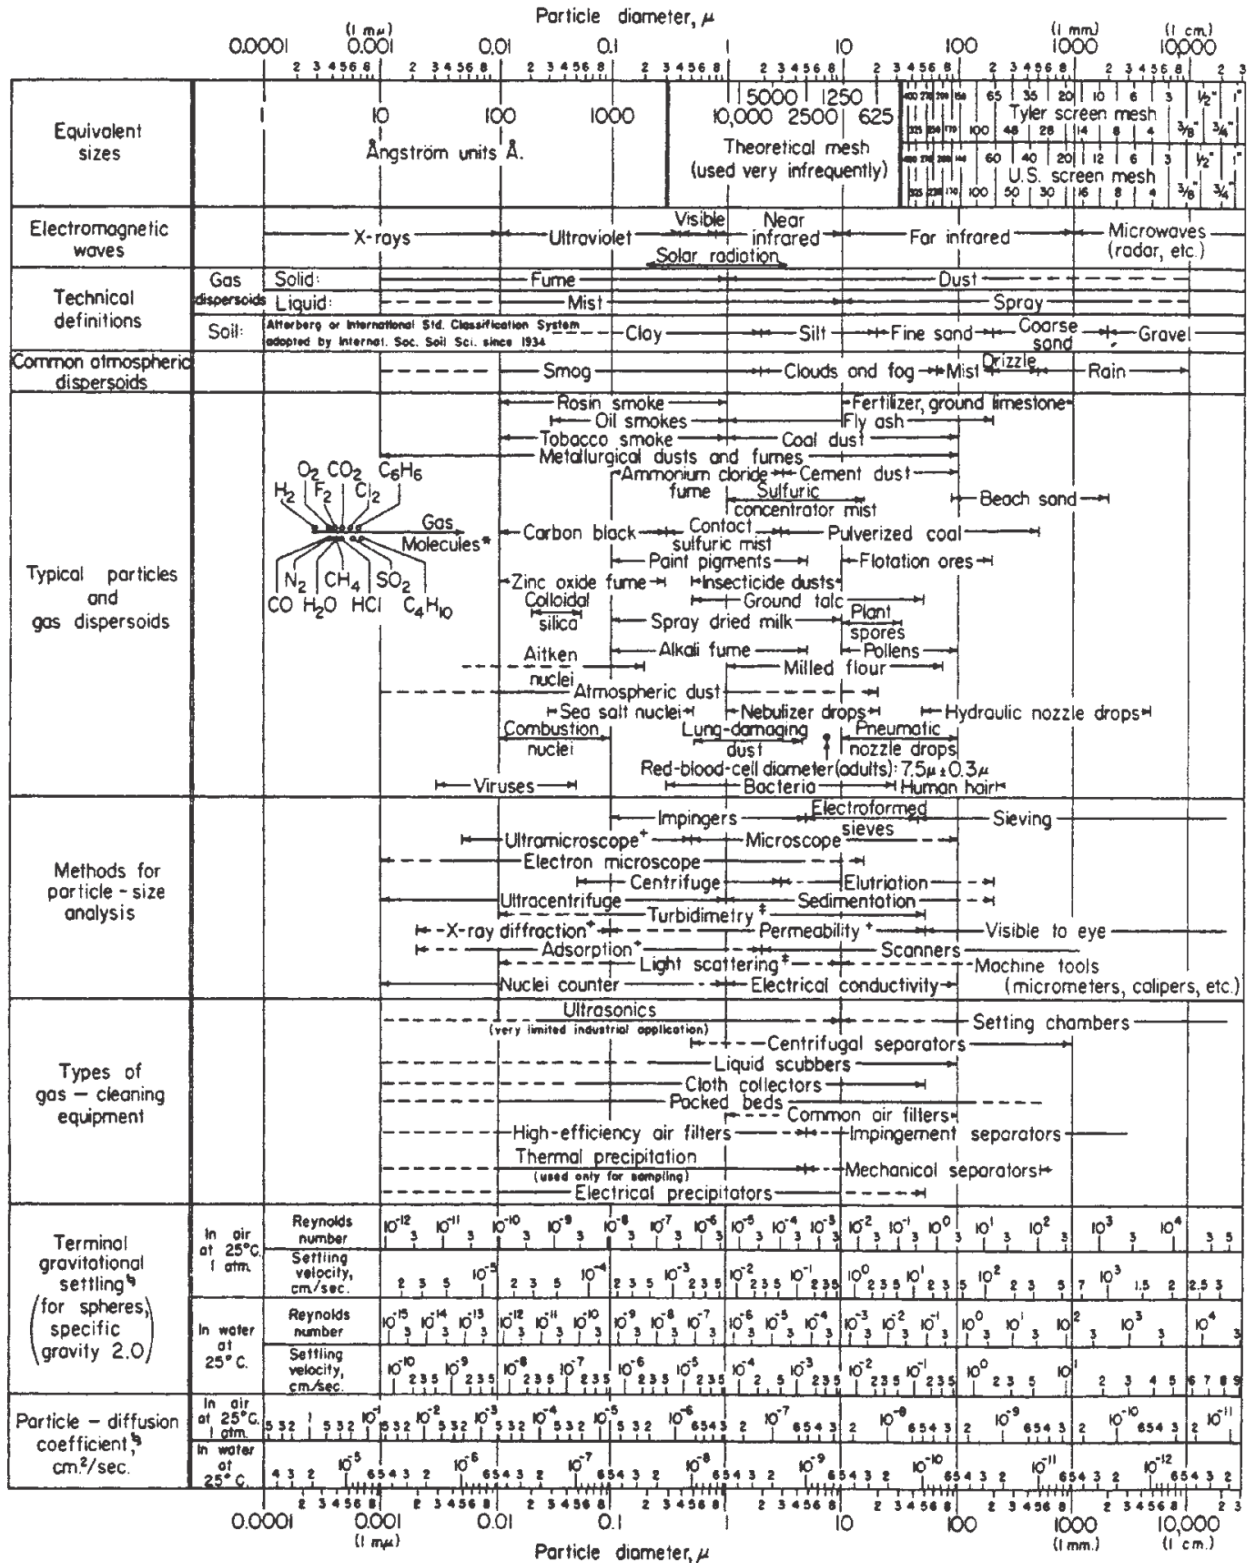 Particle diameter, μ
(1 mμ) (1 mm.) (1 cm.)
0.0001 0.001 0.01 0.1 1 10 100 1000 10,000
2 3 4 5 6 8 2 3 4 5 6 8 2 3 4 5 6 8 2 3 4 5 6 8 2 3 4 5 6 8 2 3 4 5 6 8 2 3 4 5 6 8 2 3 4 5 6 8 2 3
Equivalent
sizes
1 10 100 1000
Ångström units Å.
5000 1250
10,000 2500 625
Theoretical mesh
(used very infrequently)
65 35 20 10 6 3 1/2" 1"
Tyler screen mesh
100 48 28 14 8 4 3/8" 3/4"
60 40 20 12 6 3 1/2" 1"
U.S. screen mesh
100 50 30 16 8 4 3/8" 3/4"
Electromagnetic
waves
X-rays
Ultraviolet
Visible
Near
infrared
Far infrared
Microwaves
(radar, etc.)
Solar radiation
Technical
definitions
Gas
dispersoids
Solid: Fume Dust
Liquid: Mist Spray
Soil: Atterberg or International Std. Classification System
adopted by Internat. Soc. Soil Sci. since 1934
Clay Silt Fine sand Coarse
sand Gravel
Common atmospheric
dispersoids
Smog Clouds and fog Mist Drizzle Rain
Typical particles
and
gas dispersoids
Rosin smoke Fertilizer, ground limestone
Oil smokes Fly ash
Tobacco smoke Coal dust
Metallurgical dusts and fumes
Ammonium cloride
fume
Cement dust
Sulfuric
concentrator mist
Beach sand
O2 CO2 C6H6
H2 F2 Cl2
Gas
Molecules*
N2 CH4 SO2
CO H2O HCl C4H10
Carbon black Contact
sulfuric mist
Pulverized coal
Paint pigments Flotation ores
Zinc oxide fume Insecticide dusts
Colloidal
silica
Ground talc
Spray dried milk Plant
spores
Alkali fume Pollens
Aitken
nuclei
Milled flour
Atmospheric dust
Sea salt nuclei Nebulizer drops Hydraulic nozzle drops
Combustion
nuclei
Lung-damaging
dust
Pneumatic
nozzle drops
Red-blood-cell diameter (adults): 7.5μ ± 0.3μ
Viruses Bacteria Human hair
Methods for
particle - size
analysis
Impingers Electroformed
sieves
Sieving
Ultramicroscope+ Microscope
Electron microscope
Centrifuge Elutriation
Ultracentrifuge Sedimentation
Turbidimetry‡
X-ray diffraction+ Permeability+ Visible to eye
Adsorption+ Scanners
Light scattering‡ Machine tools
(micrometers, calipers, etc.)
Nuclei counter Electrical conductivity
Types of
gas - cleaning
equipment
Ultrasonics
(very limited industrial application)
Setting chambers
Centrifugal separators
Liquid scubbers
Cloth collectors
Packed beds
Common air filters
High-efficiency air filters Impingement separators
Thermal precipitation
(used only for sampling)
Mechanical separators
Electrical precipitators
Terminal
gravitational
settling
(for spheres,
specific
gravity 2.0)
In air
at 25°C.
1 atm.
Reynolds
number
10-12 10-11 10-10 10-9 10-8 10-7 10-6 10-5 10-4 10-3 10-2 10-1 10 0 10 1 10 2 10 3 10 4
Settling
velocity,
cm/sec.
10-5 10-4 10-3 10-2 10-1 10 0 10 1 10 2 10 3
In water
at
25°C.
Reynolds
number
10-15 10-14 10-13 10-12 10-11 10-10 10-9 10-8 10-7 10-6 10-5 10-4 10-3 10-2 10-1 10 0 10 1 10 2 10 3 10 4
Settling
velocity,
cm/sec.
10-10 10-9 10-8 10-7 10-6 10-5 10-4 10-3 10-2 10-1 10 0 10 1
Particle - diffusion
coefficient,
cm.2/sec.
In air
at 25°C.
1 atm.
1 10-1 10-2 10-3 10-4 10-5 10-6 10-7 10-8 10-9 10-10 10-11
In water
at
25°C.
10-5 10-6 10-7 10-8 10-9 10-10 10-11 10-12
2 3 4 5 6 8 2 3 4 5 6 8 2 3 4 5 6 8 2 3 4 5 6 8 2 3 4 5 6 8 2 3 4 5 6 8 2 3 4 5 6 8 2 3 4 5 6 8 2 3
0.0001 0.001 0.01 0.1 1 10 100 1000 10,000
(1 mμ) (1 mm.) (1 cm.)
Particle diameter, μ